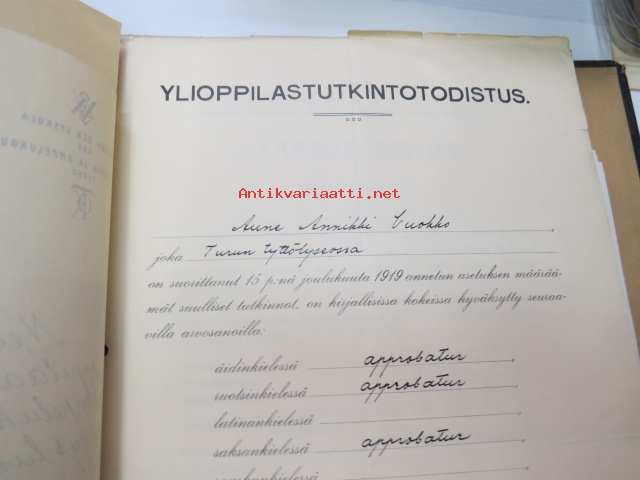 YLIOPPILASTUTKINTOTODISTUS.
Antikvariaatti.net
Aune Annikki Vuokko
joka Turun tyttölyseossa
on suorittanut 15 p:nä joulukuuta 1919 annetun asetuksen määrää-
mät suulliset tutkinnot, on kirjallisissa kokeissa hyväksytty seuraa-
villa arvosanoilla:
äidinkielessä approbatur
ruotsinkielessä approbatur
latinankielessä
saksankielessä approbatur